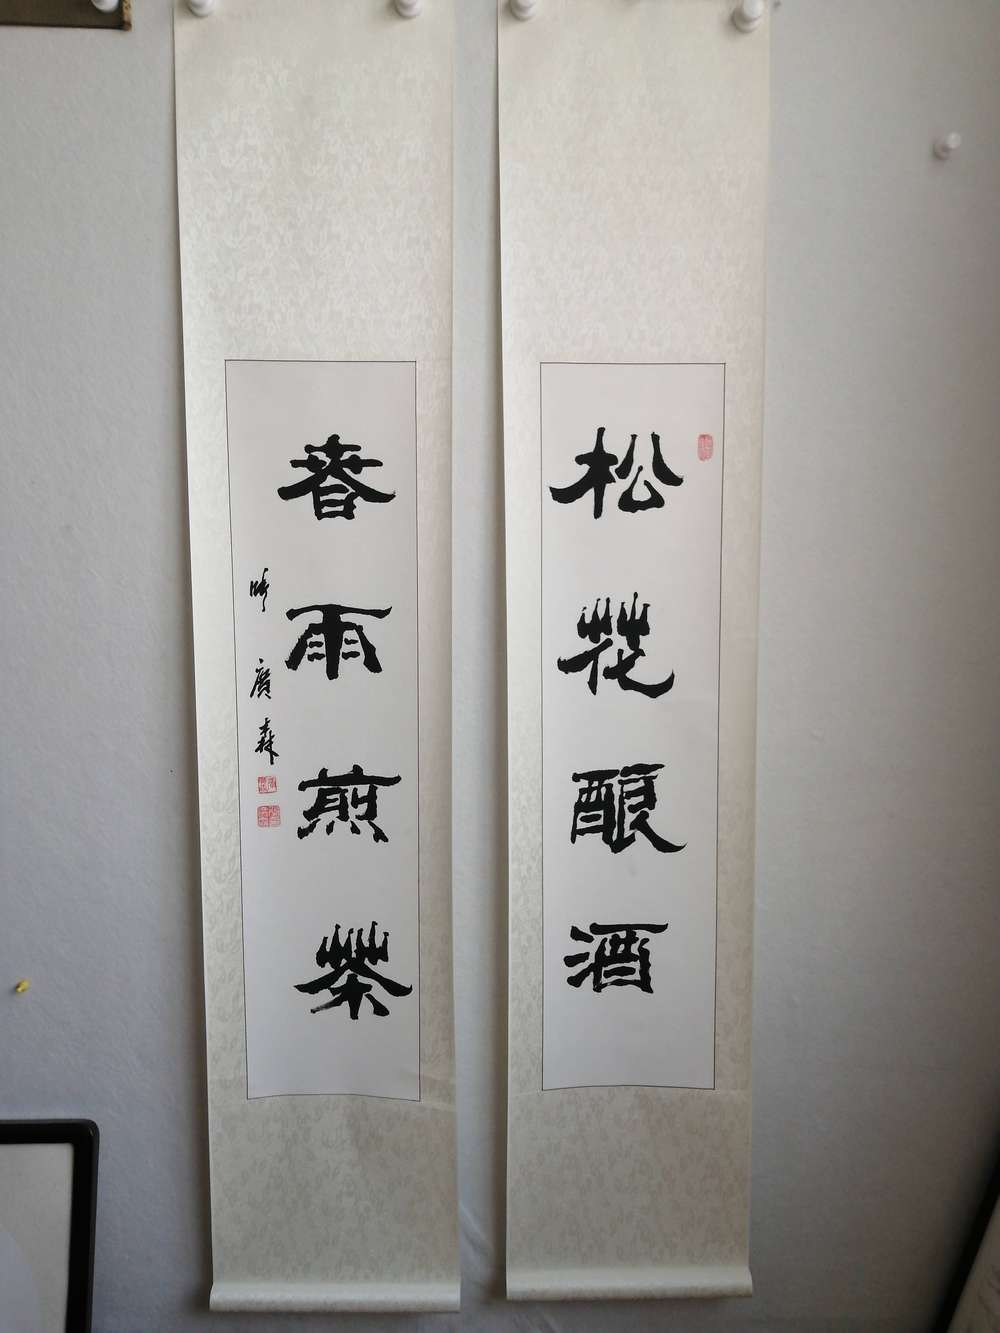 松花酿酒
春雨煎茶
廣森